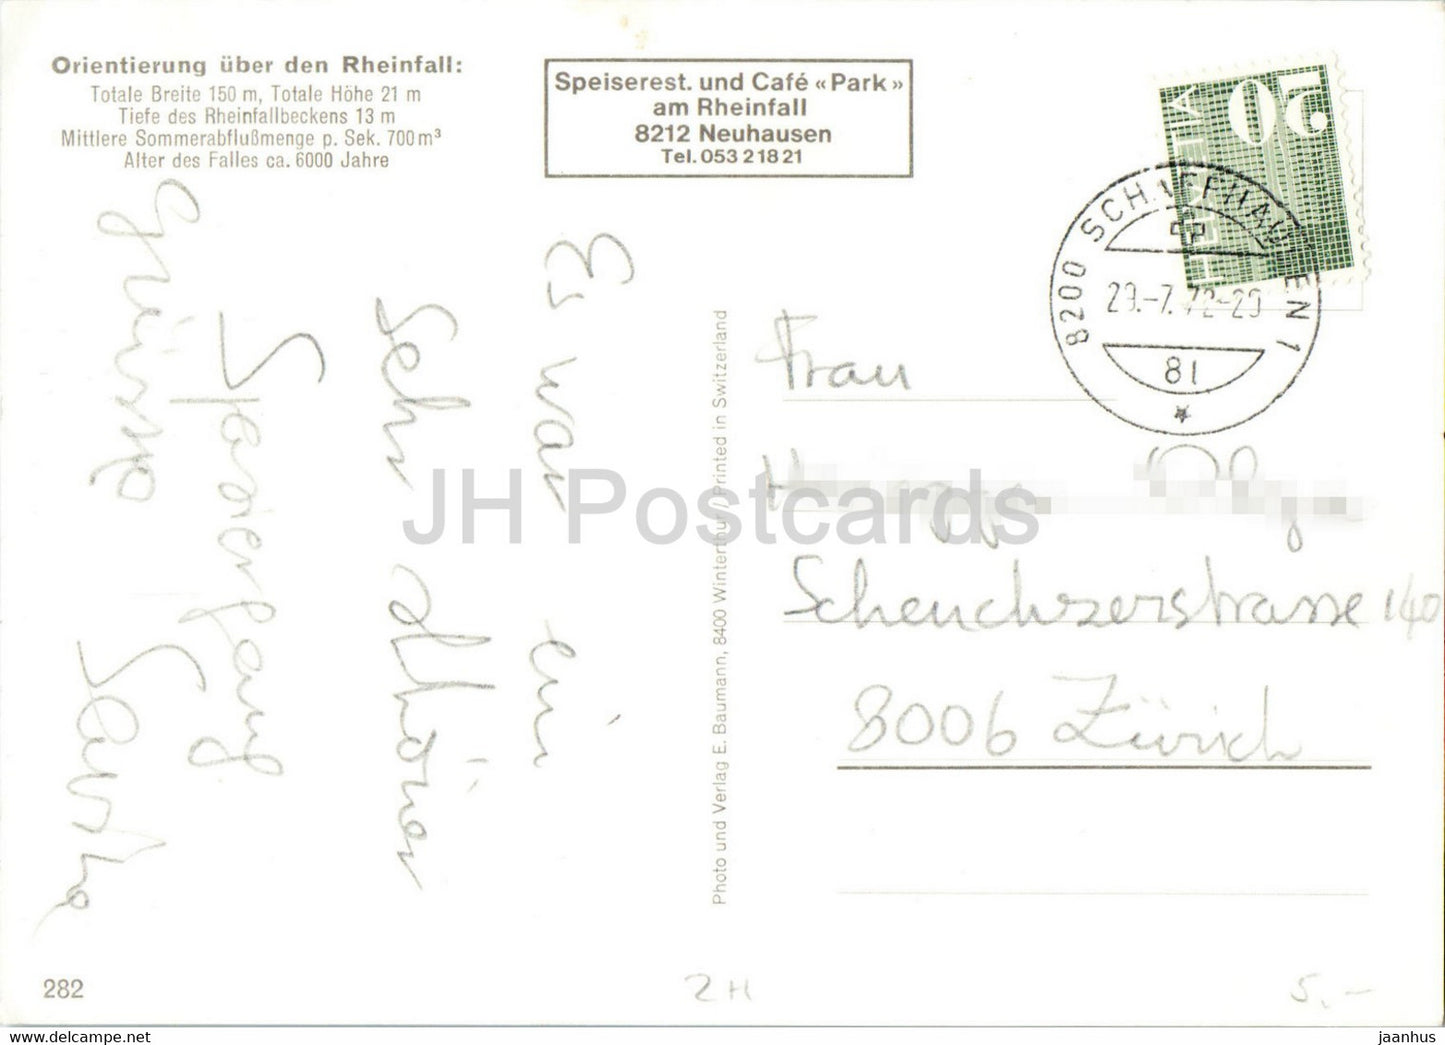 Orientierung über den Rheinfall:
Totale Breite 150 m, Totale Höhe 21 m
Tiefe des Rheinfallbeckens 13 m
Mittlere Sommerabflußmenge p. Sek. 700 m³
Alter des Falles ca. 6000 Jahre
Speiserest. und Café «Park»
am Rheinfall
8212 Neuhausen
Tel. 053 2 18 21
HELVETIA
50
8200 SCHAFFHAUSEN 1
29.-7. 72-20
81
Es war ein
sehr schöner
Spaziergang
Grüsse
Photo und Verlag E. Baumann, 8400 Winterthur / Printed in Switzerland
Frau
Scheuchzerstrasse 140
8006 Zürich
JH Postcards
282
2H
5.-
jaanhus
https://www.jhpostcards.com